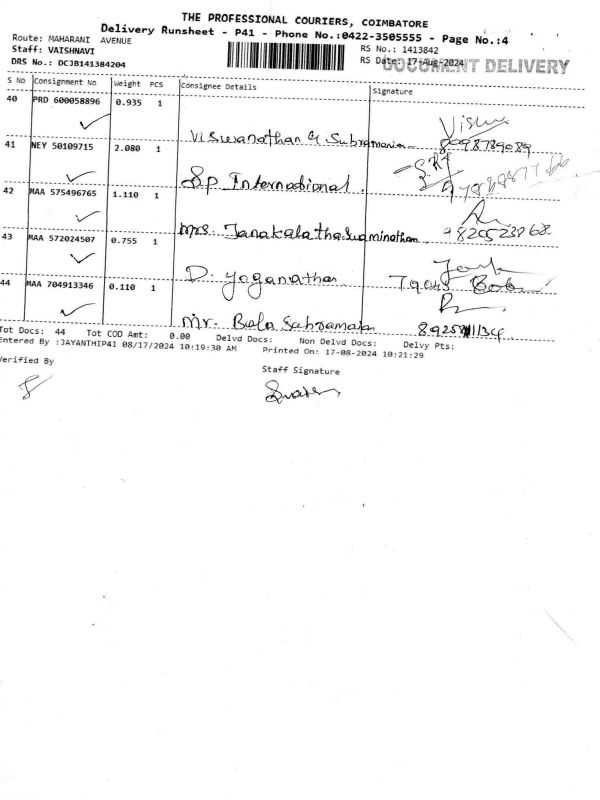 THE PROFESSIONAL COURIERS, COIMBATORE
Delivery Runsheet - P41 - Phone No.:0422-3505555 - Page No.:4
Route: MAHARANI AVENUE
Staff: VAISHNAVI
DRS No.: DCJB141384204
RS No.: 1413842
RS Date: 17-Aug-2024
DOCUMENT DELIVERY
S NO Consignment No Weight PCS Consignee Details Signature
40 PRD 600058896 0.935 1
Viswanathan G Subramanian
41 NEY 50109715 2.080 1
S.P International.
42 MAA 575496765 1.110 1
Mrs. Janakalathaswaminathan
43 MAA 572024507 0.755 1
D. Yoganathan
44 MAA 704913346 0.110 1
Mr. Bala
Tot Docs: 44 Tot COD Amt: 0.00 Delvd Docs: Non Delvd Docs: Delvy Pts:
Entered By :JAYANTHIP41 08/17/2024 10:19:30 AM Printed On: 17-08-2024 10:21:29
Verified By
Staff Signature